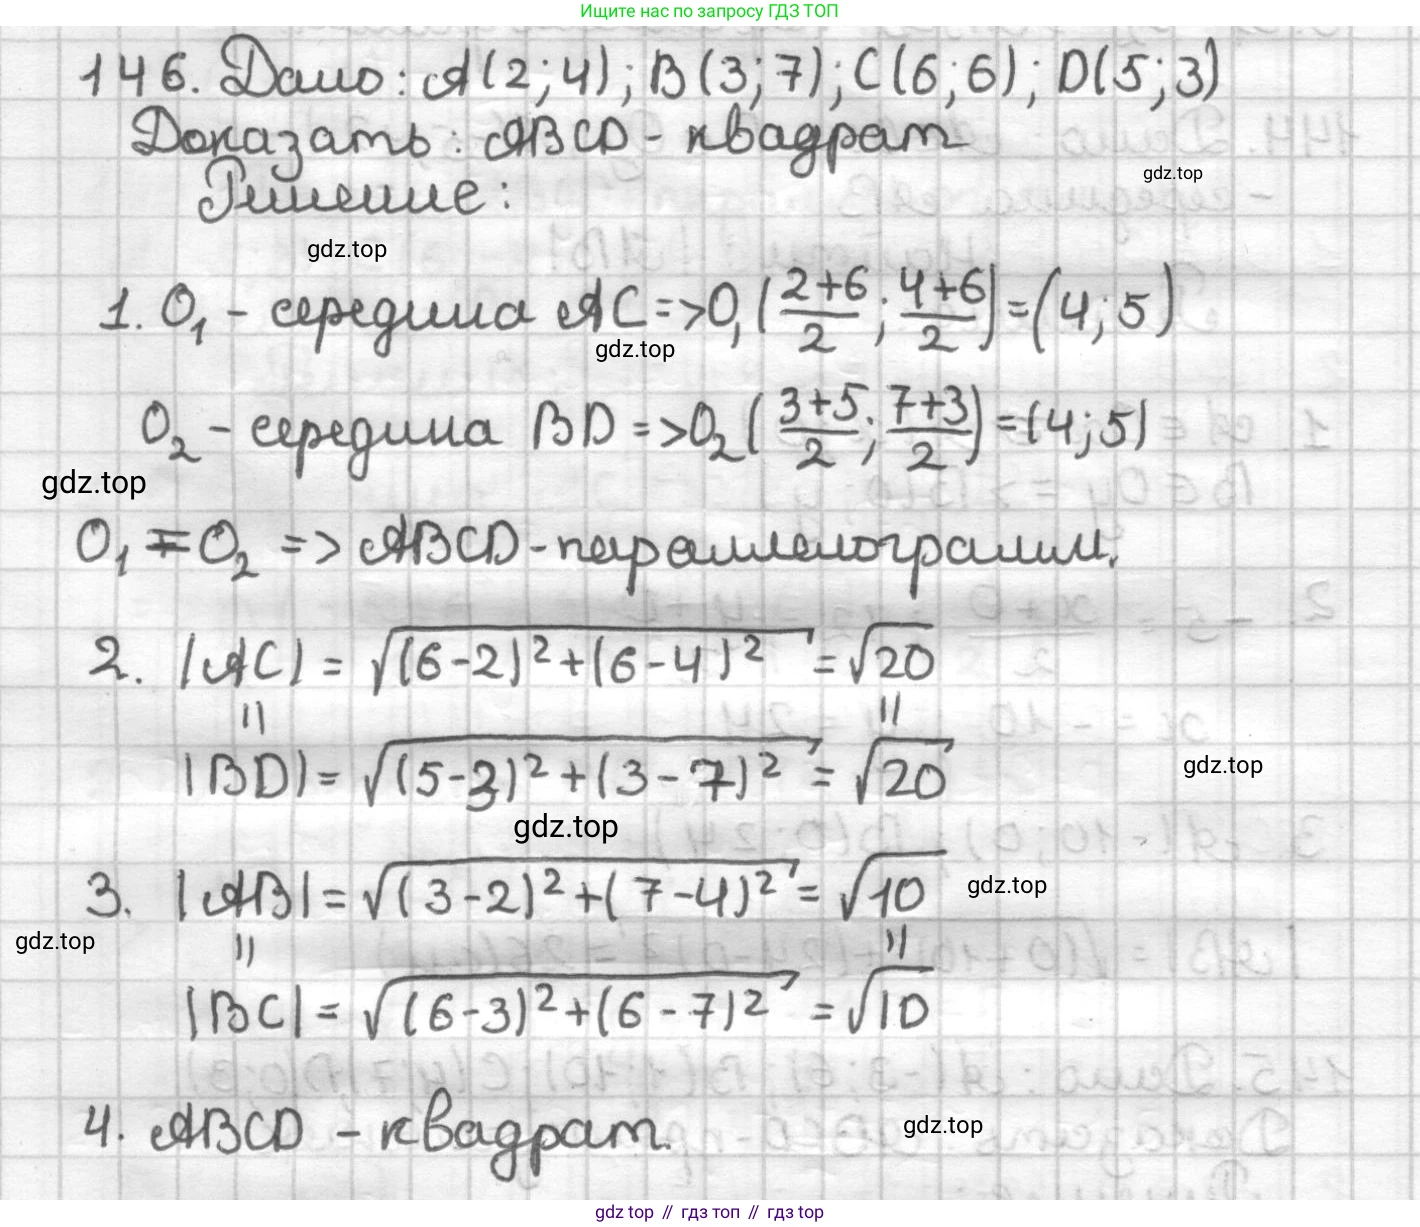 Ищите нас по запросу ГДЗ ТОП
146. Дано: A(2;4); B(3;7); C(6;6); D(5;3)
Доказать: ABCD - квадрат
gdz.top
Решение:
gdz.top
1. O₁ - середина AC => O₁ ((2+6)/2; (4+6)/2) = (4; 5)
gdz.top
O₂ - середина BD => O₂ ((3+5)/2; (7+3)/2) = (4;5)
gdz.top
O₁ = O₂ => ABCD - параллелограмм.
2. |AC| = √((6-2)²+(6-4)²) = √20
=
=
|BD| = √((5-3)²+(3-7)²) = √20
gdz.top
gdz.top
3. |AB| = √((3-2)²+(7-4)²) = √10
gdz.top
gdz.top
=
=
|BC| = √((6-3)²+(6-7)²) = √10
4. ABCD - квадрат.
gdz.top
gdz top // гдз топ // гдз top